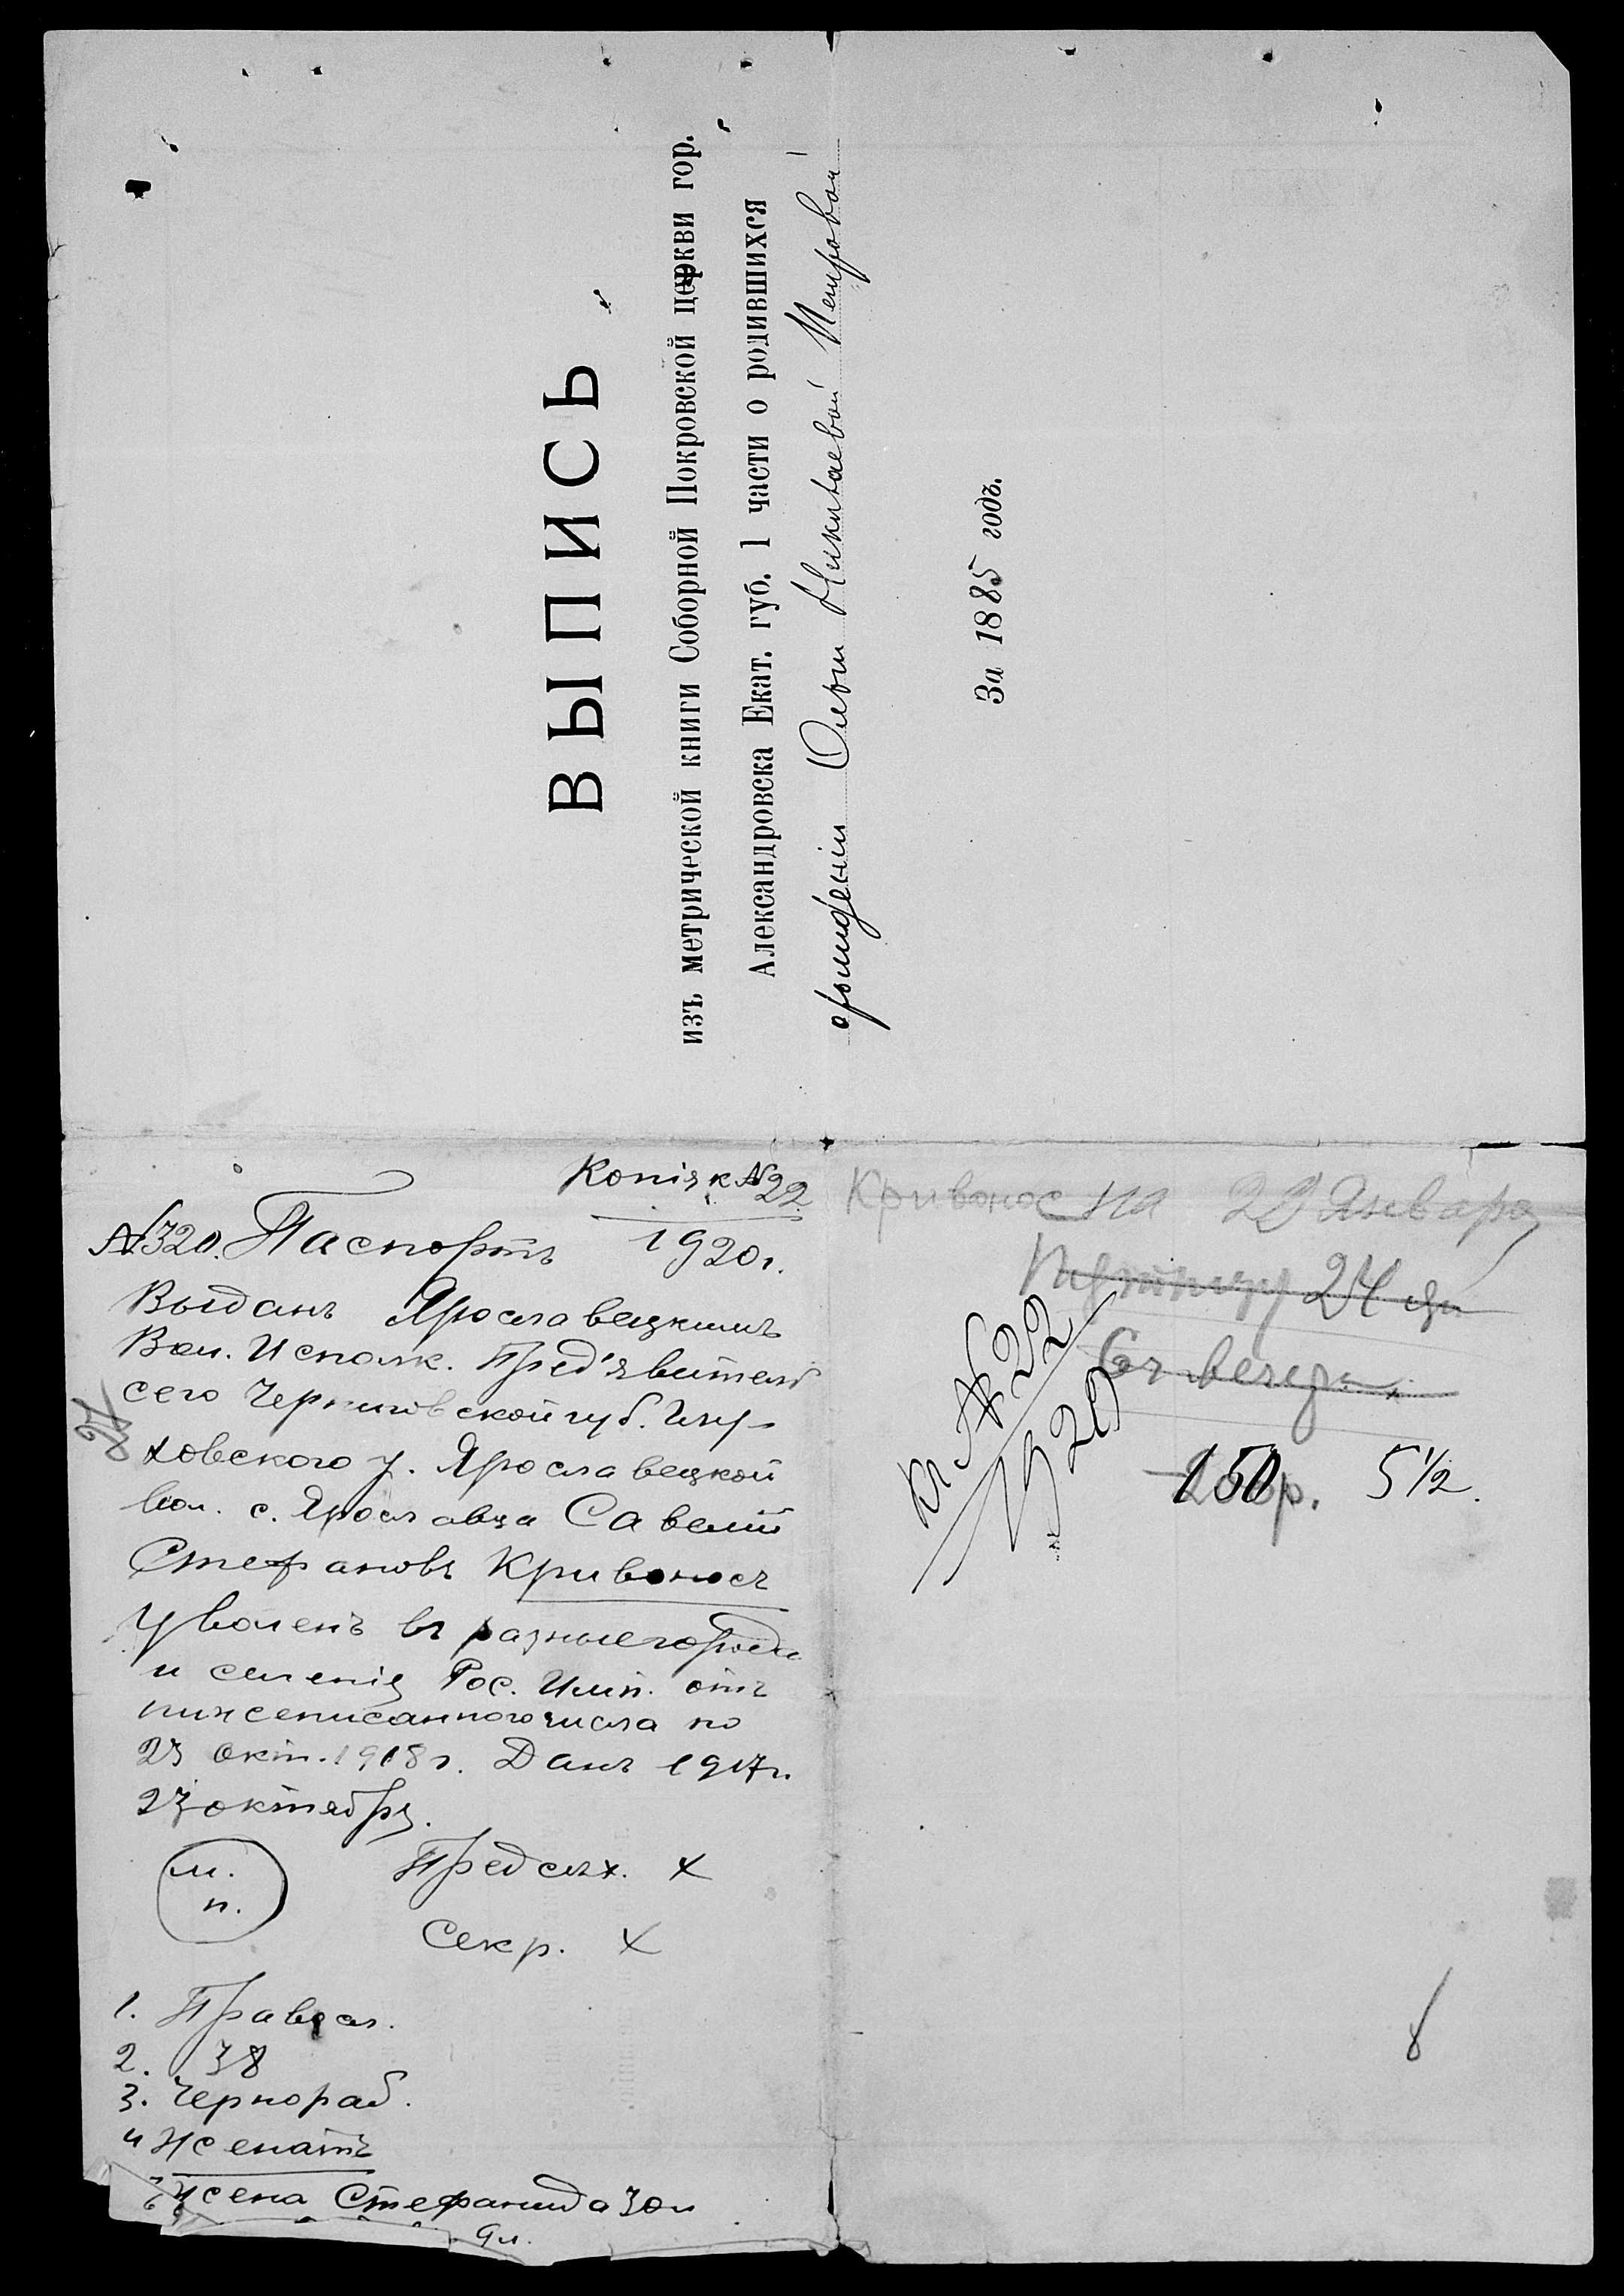 ВЫПИСЬ
изъ метрической книги Соборной Покровской церкви гор.
Александровска Екат. губ. 1 части о родившихся
о рожденiи Ольги Николаевой Петровой
За 1885 годъ.
Копiя к №22
1920 г.
№320. Паспортъ
Выданъ Ярославецкимъ
Вол. Исполк. Пред'явителю
сего Черниговской губ. Глу-
ховского у. Ярославецкой
вол. с. Ярославца Савелiй
Стефановъ Кривоносъ
уволенъ въ разные города
и селенiя Рос. Имп. отъ
нижеписанного числа по
23 Окт. 1918 г. Данъ 1917 г.
23 октября.
м.
п.
Предсѣд. х
Секр. х
1. Правосл.
2. 38
3. Чернораб.
4 Женатъ
жена Стефанида 30 л
9 л.
24
Кривонос на 22 Января
24
6 ч вечера
К №22
1920
150 р. 5 1/2.
8